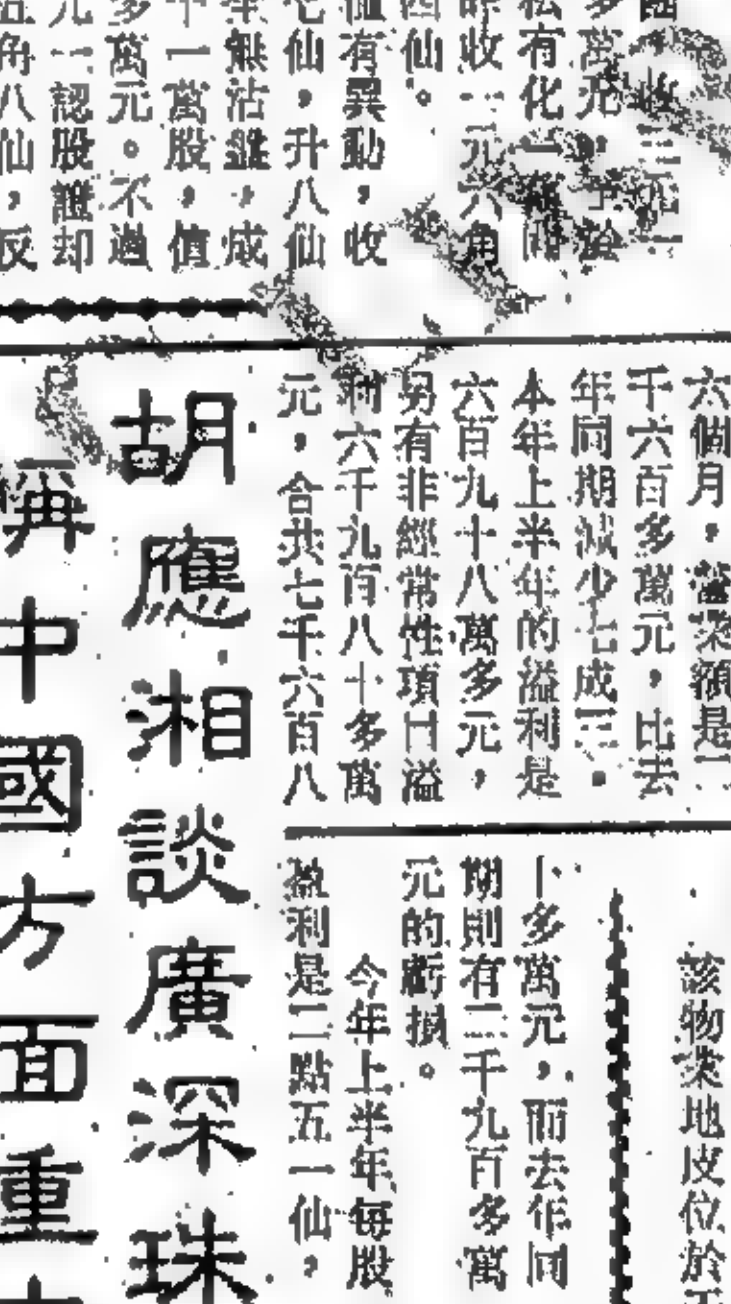 多萬元
私有化一
昨收二元六角
四仙。
值有異動，收
七仙，升八仙
無沽盤，成
十一萬股，值
多萬元。不過
元一認股證却
五角八仙，反
六個月，營業額是二
千六百多萬元，比去
年同期減少七成三。
本年上半年的溢利是
六百九十八萬多元，
另有非經常性項目溢
利六千九百八十多萬
元，合共七千六百八
十多萬元，而去年同
期則有二千九百多萬
元的虧損。
今年上半年每股
盈利是二點五一仙，
該物業地皮位於
胡應湘談廣深珠
稱中國方面重